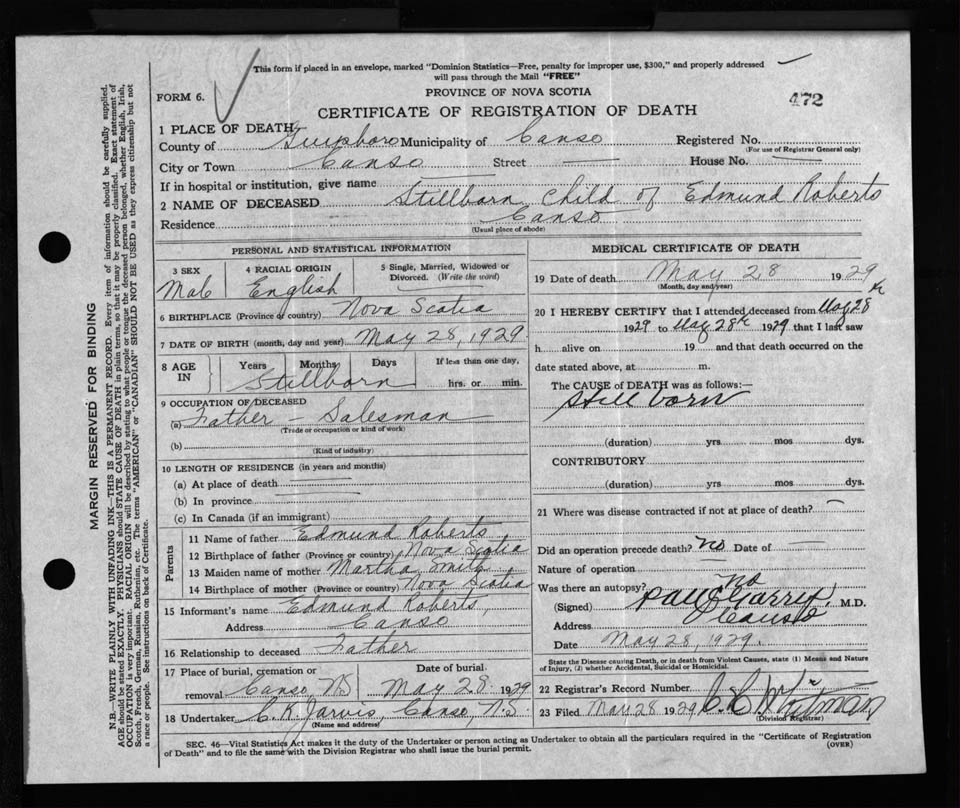 This form if placed in an envelope, marked "Dominion Statistics—Free, penalty for improper use, $300," and properly addressed
will pass through the Mail "FREE"
FORM 6.
PROVINCE OF NOVA SCOTIA
472
CERTIFICATE OF REGISTRATION OF DEATH
1 PLACE OF DEATH
County of Guysboro Municipality of Canso Registered No.
(For use of Registrar General only)
City or Town Canso Street — House No. —
If in hospital or institution, give name
2 NAME OF DECEASED Stillborn Child of Edmund Roberts
Residence Canso
(Usual place of abode)
PERSONAL AND STATISTICAL INFORMATION
3 SEX 4 RACIAL ORIGIN 5 Single, Married, Widowed or Divorced. (Write the word)
Male English
6 BIRTHPLACE (Province or country) Nova Scotia
7 DATE OF BIRTH (month, day and year) May 28, 1929
8 AGE IN Years Months Days If less than one day,
Stillborn hrs. or min.
9 OCCUPATION OF DECEASED
(a) Father - Salesman
(Trade or occupation or kind of work)
(b)
(Kind of industry)
10 LENGTH OF RESIDENCE (in years and months)
(a) At place of death
(b) In province
(c) In Canada (if an immigrant)
Parents
11 Name of father Edmund Roberts
12 Birthplace of father (Province or country) Nova Scotia
13 Maiden name of mother Martha
14 Birthplace of mother (Province or country) Nova Scotia
15 Informant's name Edmund Roberts,
Address Canso
16 Relationship to deceased Father
17 Place of burial, cremation or removal Date of burial.
Canso, NS May 28 1929
18 Undertaker C. K. Jarvis, Canso, N.S.
(Name and address)
MEDICAL CERTIFICATE OF DEATH
19 Date of death May 28 1929
(Month, day and year)
20 I HEREBY CERTIFY that I attended deceased from May 28th
1929 to May 28th 1929 that I last saw
h alive on 19 and that death occurred on the
date stated above, at m.
The CAUSE of DEATH was as follows:—
Still born
(duration) yrs mos dys.
CONTRIBUTORY
(duration) yrs mos dys.
21 Where was disease contracted if not at place of death? —
Did an operation precede death? No Date of —
Nature of operation
Was there an autopsy? no
(Signed) M.D.
Address Canso
Date May 28, 1929.
State the Disease causing Death, or in death from Violent Causes, state (1) Means and Nature
of Injury, (2) whether Accidental, Suicidal or Homicidal.
22 Registrar's Record Number
23 Filed May 28 1929 Whitman
(Division Registrar)
SEC. 46—Vital Statistics Act makes it the duty of the Undertaker or person acting as Undertaker to obtain all the particulars required in the "Certificate of Registration
of Death" and to file the same with the Division Registrar who shall issue the burial permit.
(OVER)
MARGIN RESERVED FOR BINDING
N.B.—WRITE PLAINLY WITH UNFADING INK—THIS IS A PERMANENT RECORD. Every item of information should be carefully supplied.
AGE should be stated EXACTLY. PHYSICIANS should STATE CAUSE OF DEATH in plain terms, so that it may be properly classified. Exact statement of
OCCUPATION is very important. RACIAL ORIGIN will be described by stating to what people or tongue the deceased person belonged, whether English, Irish,
Scotch, French, German, Russian, Ruthenian, etc. The terms "AMERICAN" or "CANADIAN" SHOULD NOT BE USED as they express citizenship but not
a race or people. See instructions on back of Certificate.